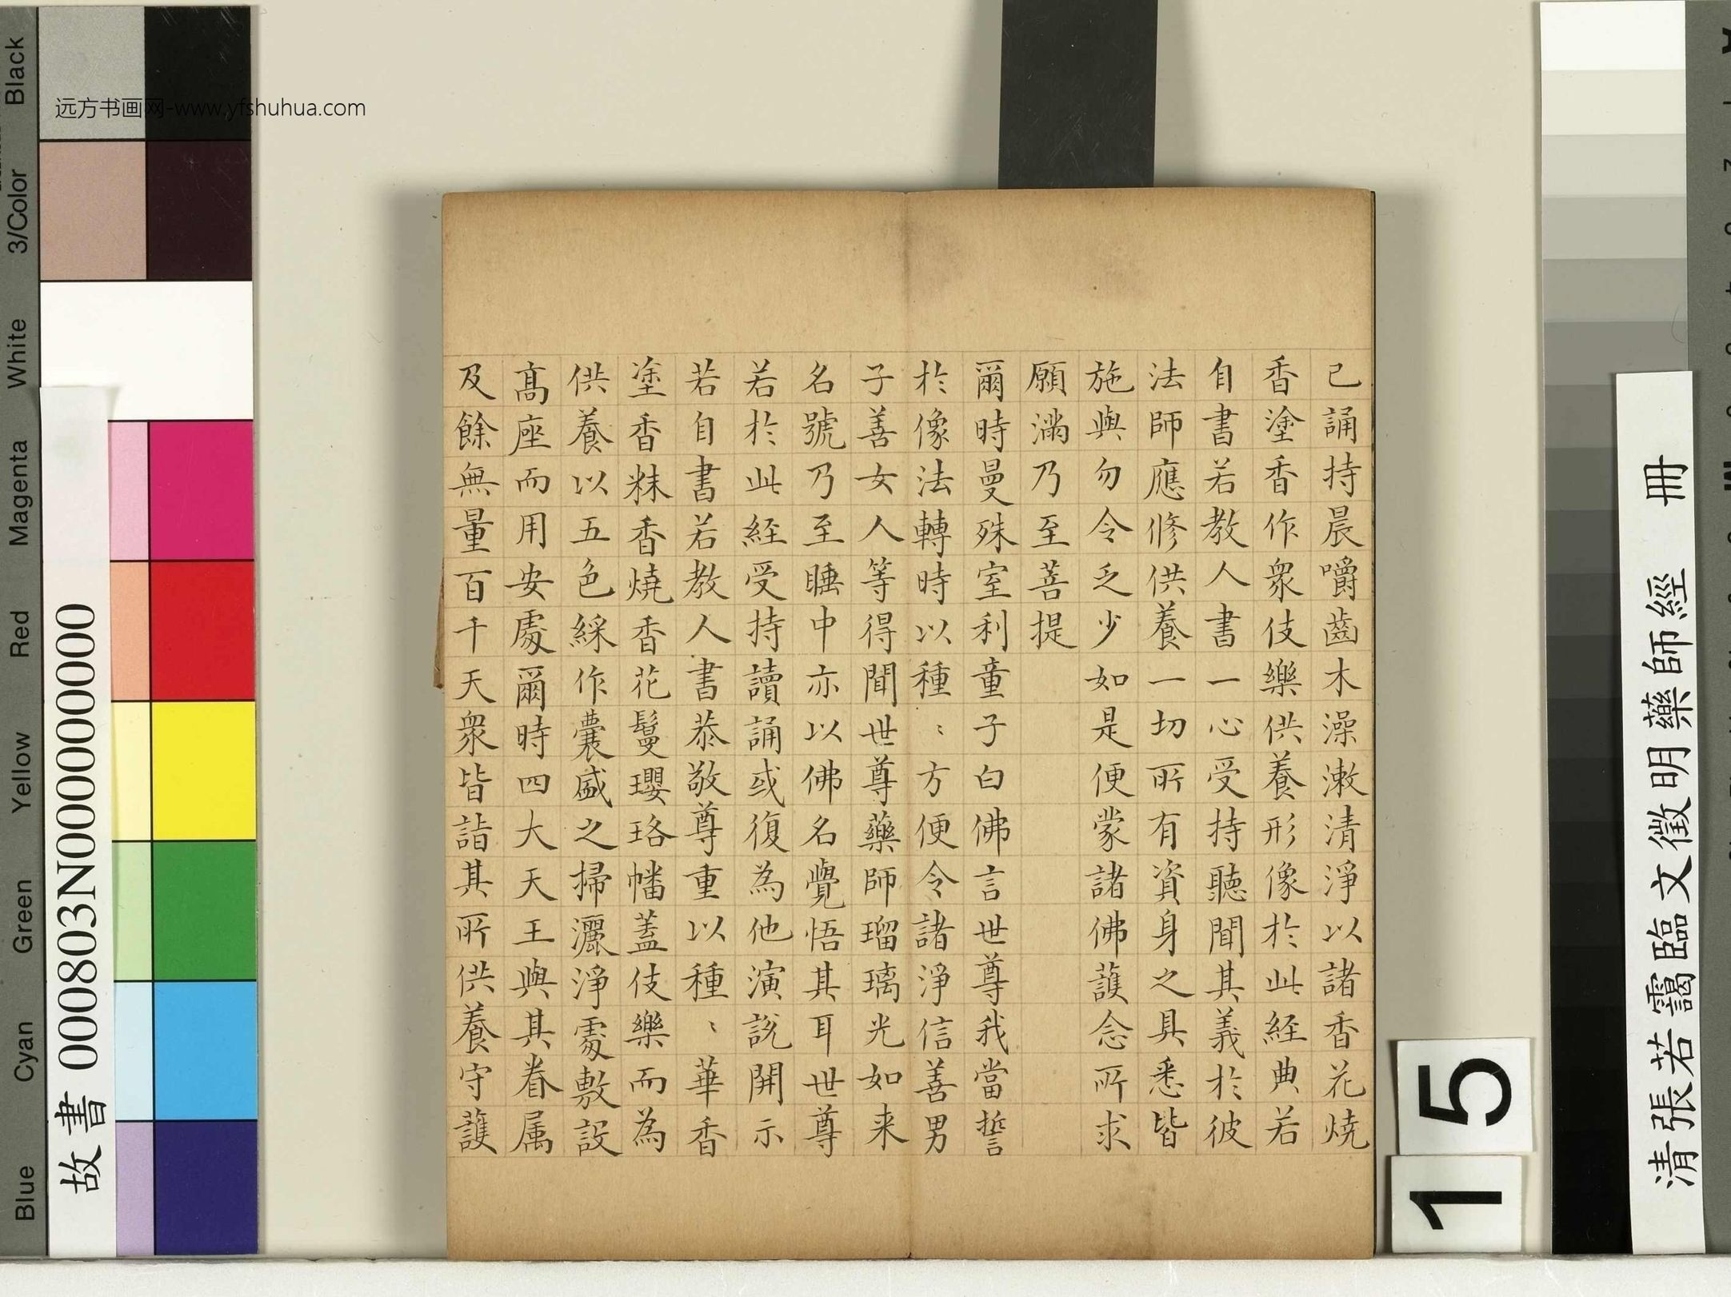 已誦持晨嚼齒木澡漱清淨以諸香花燒
香塗香作衆伎樂供養形像於此経典若
自書若教人書一心受持聽聞其義於彼
法師應修供養一切所有資身之具悉皆
施與勿令乏少如是便蒙諸佛護念所求
願滿乃至菩提
爾時曼殊室利童子白佛言世尊我當誓
於像法轉時以種〻方便令諸淨信善男
子善女人等得聞世尊藥師瑠璃光如来
名號乃至睡中亦以佛名覺悟其耳世尊
若於此経受持讀誦或復為他演說開示
若自書若教人書恭敬尊重以種〻華香
塗香粖香燒香花鬘瓔珞幡蓋伎樂而為
供養以五色綵作囊盛之掃灑淨處敷設
高座而用安處爾時四大天王與其眷属
及餘無量百千天衆皆詣其所供養守護
远方书画网-www.yfshuhua.com
故書 000803N000000000
清張若靄臨文徵明藥師經 冊
15
Black
3/Color
White
Magenta
Red
Yellow
Green
Cyan
Blue